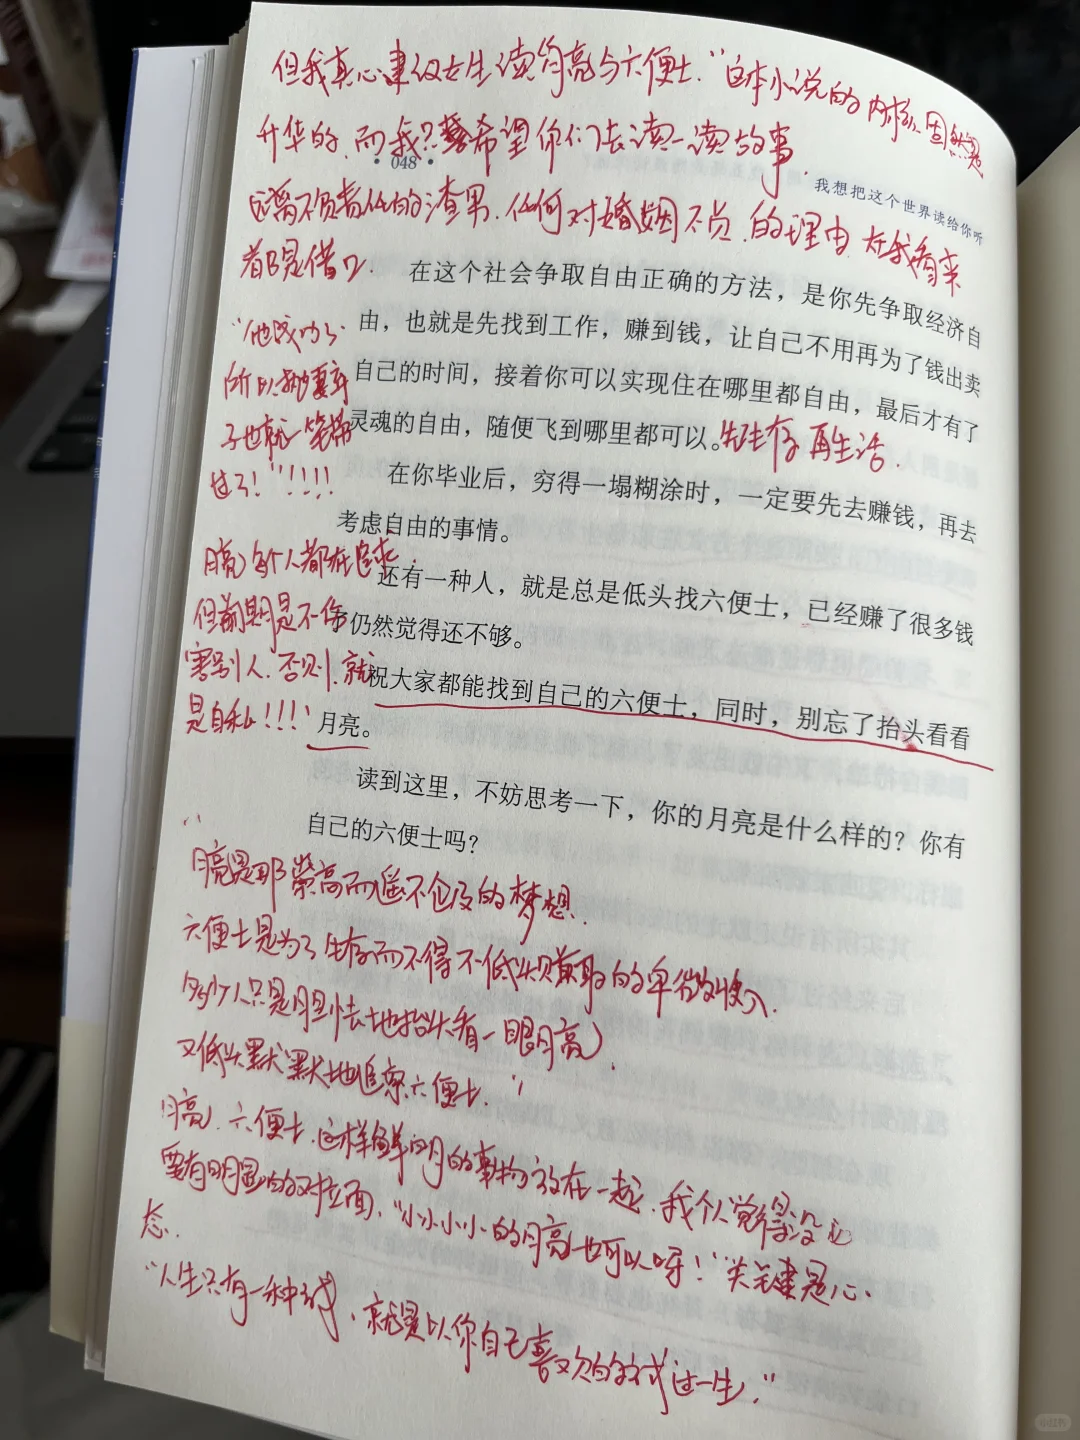 但我真心建议女生读"月亮与六便士"这本小说的内核固然是
升华的.而我只希望你们去读一读故事.
• 048 •
我想把这个世界读给你听
远离不负责任的渣男.任何对婚姻不负的理由.在我看来
都是借口.
在这个社会争取自由正确的方法,是你先争取经济自
由,也就是先找到工作,赚到钱,让自己不用再为了钱出卖
自己的时间,接着你可以实现住在哪里都自由,最后才有了
灵魂的自由,随便飞到哪里都可以。
先生存 再生活.
"他成功了.
所以抛妻弃
子也就一笔带
过了!"!!!!
在你毕业后,穷得一塌糊涂时,一定要先去赚钱,再去
考虑自由的事情。
还有一种人,就是总是低头找六便士,已经赚了很多钱
仍然觉得还不够。
月亮每个人都在追求.
但前期是不伤
害别人.否则.就
是自私!!!
祝大家都能找到自己的六便士,同时,别忘了抬头看看
月亮。
读到这里,不妨思考一下,你的月亮是什么样的?你有
自己的六便士吗?
"月亮是那崇高而遥不可及的梦想.
六便士是为了生存而不得不低头赚取的卑微收入.
多少人只是胆怯地抬头看一眼月亮.
又低头默默地追逐六便士."
月亮.六便士.这样鲜明的事物放在一起.我个人觉得没必
要有明显的对立面."小小小小的月亮也可以呀!"关键是心
态.
"人生只有一种成功.就是以你自己喜欢的方式过一生."